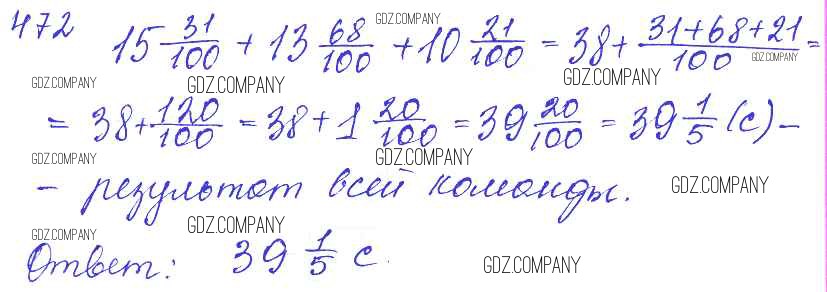 472 15 31/100 + 13 68/100 + 10 21/100 = 38 + (31+68+21)/100 =
GDZ.COMPANY
GDZ.COMPANY
GDZ.COMPANY GDZ.COMPANY GDZ.COMPANY
= 38 + 120/100 = 38 + 1 20/100 = 39 20/100 = 39 1/5 (с) –
GDZ.COMPANY GDZ.COMPANY
– результат всей команды. GDZ.COMPANY
GDZ.COMPANY GDZ.COMPANY
Ответ: 39 1/5 с.
GDZ.COMPANY